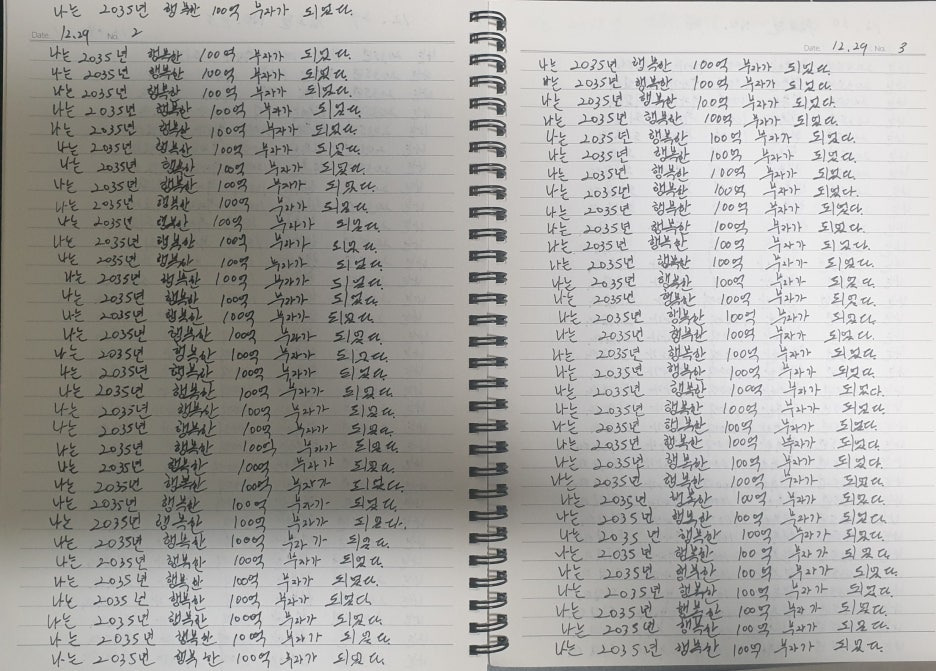 나는 2035년 행복한 100억 부자가 되었다.
Date 12.29 No. 2
나는 2035년 행복한 100억 부자가 되었다.
나는 2035년 행복한 100억 부자가 되었다.
나는 2035년 행복한 100억 부자가 되었다.
나는 2035년 행복한 100억 부자가 되었다.
나는 2035년 행복한 100억 부자가 되었다.
나는 2035년 행복한 100억 부자가 되었다.
나는 2035년 행복한 100억 부자가 되었다.
나는 2035년 행복한 100억 부자가 되었다.
나는 2035년 행복한 100억 부자가 되었다.
나는 2035년 행복한 100억 부자가 되었다.
나는 2035년 행복한 100억 부자가 되었다.
나는 2035년 행복한 100억 부자가 되었다.
나는 2035년 행복한 100억 부자가 되었다.
나는 2035년 행복한 100억 부자가 되었다.
나는 2035년 행복한 100억 부자가 되었다.
나는 2035년 행복한 100억 부자가 되었다.
나는 2035년 행복한 100억 부자가 되었다.
나는 2035년 행복한 100억 부자가 되었다.
나는 2035년 행복한 100억 부자가 되었다.
나는 2035년 행복한 100억 부자가 되었다.
나는 2035년 행복한 100억 부자가 되었다.
나는 2035년 행복한 100억 부자가 되었다.
나는 2035년 행복한 100억 부자가 되었다.
나는 2035년 행복한 100억 부자가 되었다.
나는 2035년 행복한 100억 부자가 되었다.
나는 2035년 행복한 100억 부자가 되었다.
나는 2035년 행복한 100억 부자가 되었다.
나는 2035년 행복한 100억 부자가 되었다.
나는 2035년 행복한 100억 부자가 되었다.
나는 2035년 행복한 100억 부자가 되었다.
나는 2035년 행복한 100억 부자가 되었다.
나는 2035년 행복한 100억 부자가 되었다.
나는 2035년 행복한 100억 부자가 되었다.
Date 12.29 No. 3
나는 2035년 행복한 100억 부자가 되었다.
나는 2035년 행복한 100억 부자가 되었다.
나는 2035년 행복한 100억 부자가 되었다.
나는 2035년 행복한 100억 부자가 되었다.
나는 2035년 행복한 100억 부자가 되었다.
나는 2035년 행복한 100억 부자가 되었다.
나는 2035년 행복한 100억 부자가 되었다.
나는 2035년 행복한 100억 부자가 되었다.
나는 2035년 행복한 100억 부자가 되었다.
나는 2035년 행복한 100억 부자가 되었다.
나는 2035년 행복한 100억 부자가 되었다.
나는 2035년 행복한 100억 부자가 되었다.
나는 2035년 행복한 100억 부자가 되었다.
나는 2035년 행복한 100억 부자가 되었다.
나는 2035년 행복한 100억 부자가 되었다.
나는 2035년 행복한 100억 부자가 되었다.
나는 2035년 행복한 100억 부자가 되었다.
나는 2035년 행복한 100억 부자가 되었다.
나는 2035년 행복한 100억 부자가 되었다.
나는 2035년 행복한 100억 부자가 되었다.
나는 2035년 행복한 100억 부자가 되었다.
나는 2035년 행복한 100억 부자가 되었다.
나는 2035년 행복한 100억 부자가 되었다.
나는 2035년 행복한 100억 부자가 되었다.
나는 2035년 행복한 100억 부자가 되었다.
나는 2035년 행복한 100억 부자가 되었다.
나는 2035년 행복한 100억 부자가 되었다.
나는 2035년 행복한 100억 부자가 되었다.
나는 2035년 행복한 100억 부자가 되었다.
나는 2035년 행복한 100억 부자가 되었다.
나는 2035년 행복한 100억 부자가 되었다.
나는 2035년 행복한 100억 부자가 되었다.
나는 2035년 행복한 100억 부자가 되었다.